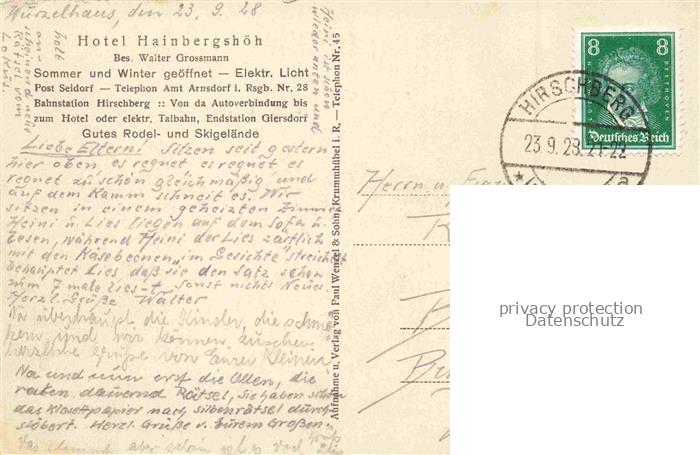 Wurzelhaus, den 23. 9. 28
Hotel Hainbergshöh
Bes. Walter Grossmann
Sommer und Winter geöffnet — Elektr. Licht
Post Seidorf — Telephon Amt Arnsdorf i. Rsgb. Nr. 28
Bahnstation Hirschberg :: Von da Autoverbindung bis
zum Hotel oder elektr. Talbahn, Endstation Giersdorf
Gutes Rodel- und Skigelände
Liebe Eltern! Sitzen seit gestern
hier oben es regnet es regnet es
regnet zu schön gleichmäßig und
auf dem Kamm schneit es. Wir
sitzen in einem geheizten Zimmer
Heini u. Lies liegen auf dem Sofa u.
lesen, während Heini der Lies zärtlich
mit den Käsebeenen „im Gesichte" streichelt
behauptet Lies daß sie den Satz schon
zum 7 male liest. Sonst nichts Neues
Herzl. Grüße Walter
Na überhaupt die Kinder, die
und wir können
herzliche Grüße von Euren Kleinen
Na und nun erst die Ollen, die
raten dauernd Rätsel, Sie haben schon
das Klosettpapier nach Silbenrätsel durch-
stöbert. Herzl. Grüße v. Eurem Großen
Das stimmt aber schön ist es doch
Heini ist schon
wieder unten und
holt
Rätsel vom
Lokus.
Aufnahme u. Verlag von Paul Wenzel & Sohn, Krummhübel i. R., — Telephon Nr. 45
8 8
BEETHOVEN
Deutsches Reich
HIRSCHBERG
23.9.28.21-22
Herrn u. Frau
privacy protection
Datenschutz